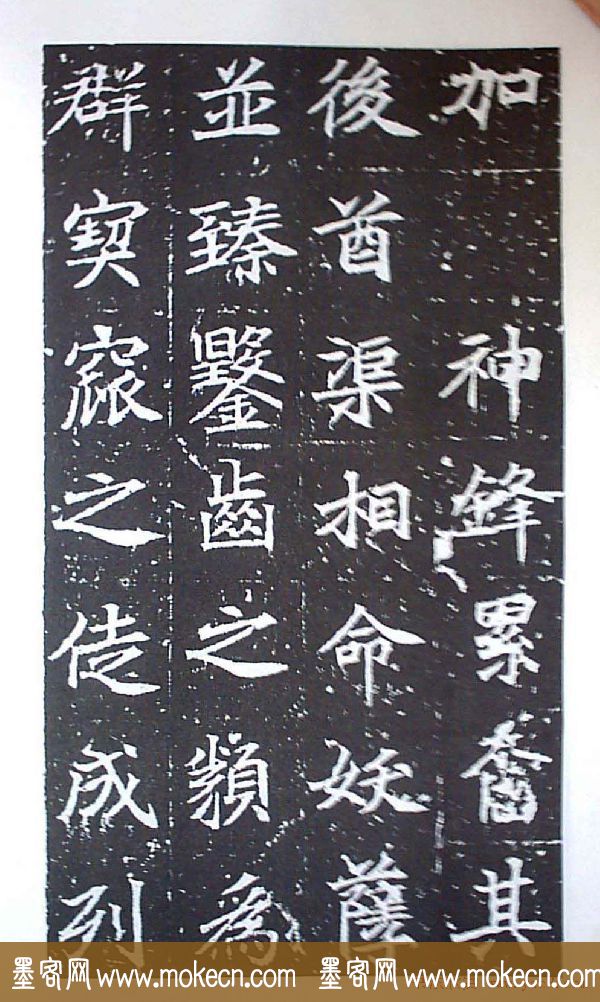 加 神鋒累奮其
後酋渠相命妖孽
並臻鑿齒之類為
群窫窳之徒成列
墨客网 www.mokecn.com 墨客网 www.mokecn.com